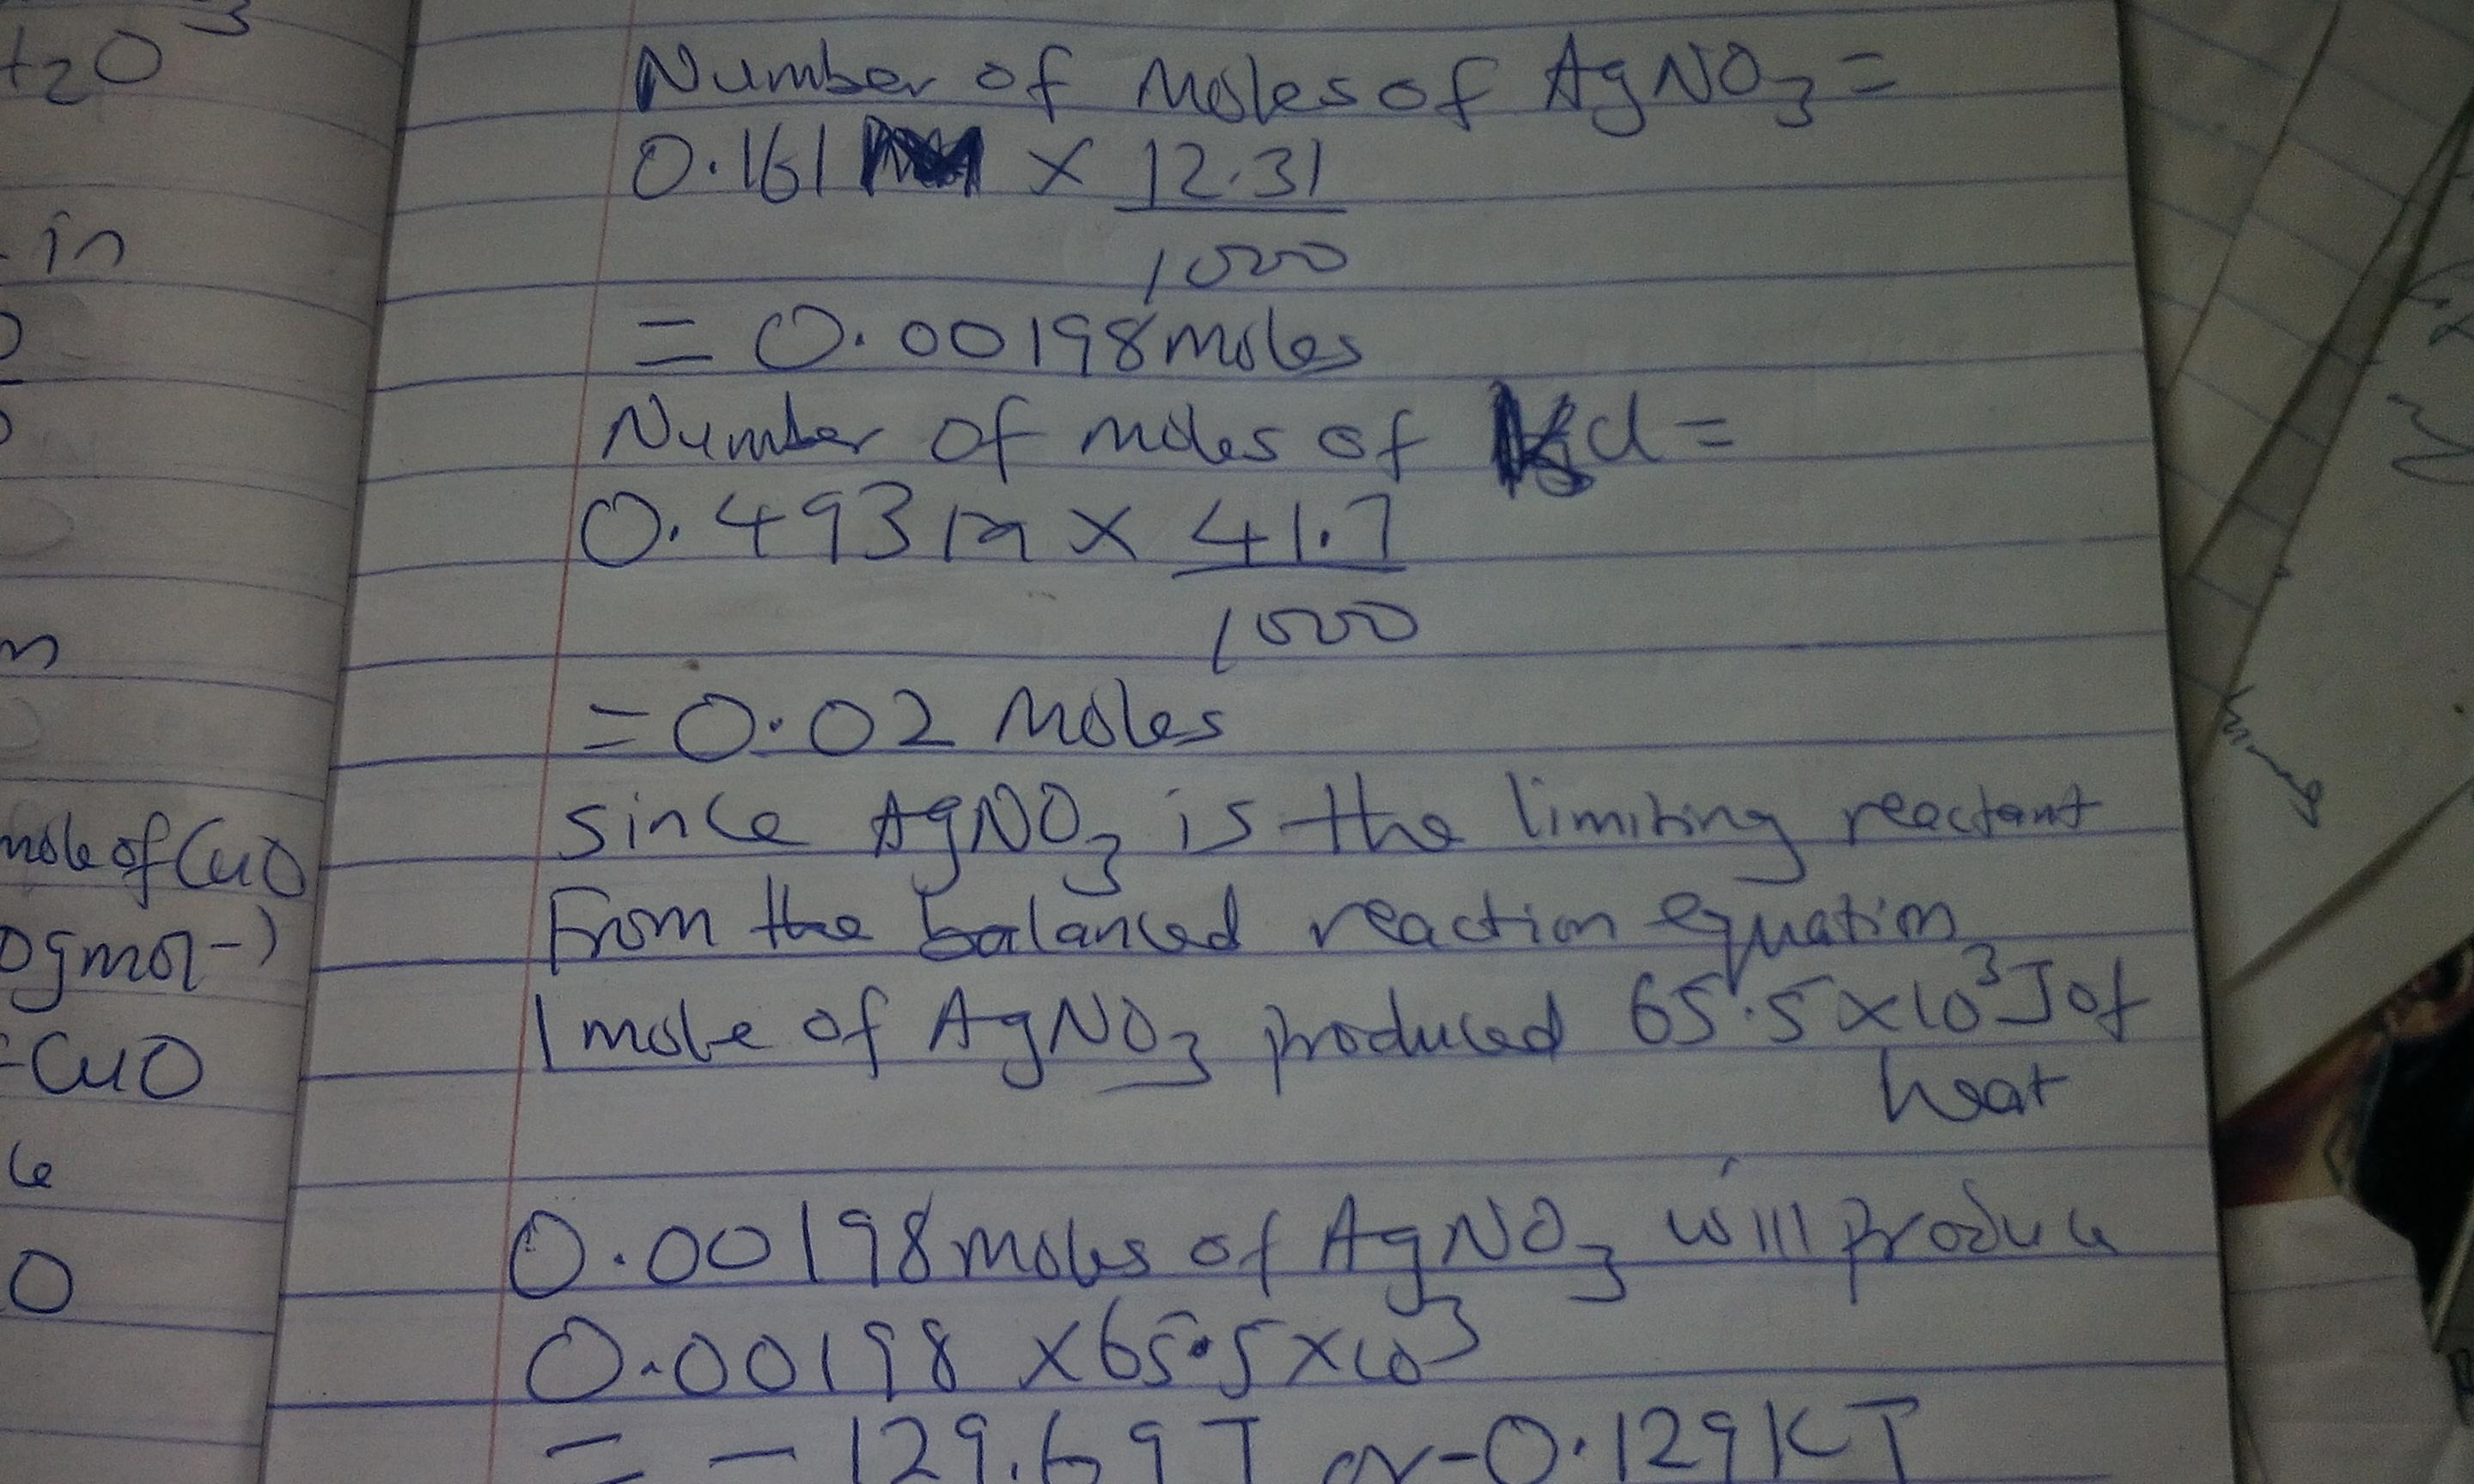 H2O
in
m
mole of CuO
gmol-)
CuO
O
Number of Moles of AgNO3 =
0.161 × 12.31
1000
= 0.00198 moles
Number of moles of Kcl =
0.493 m × 41.7
1000
= 0.02 Moles
since AgNO3 is the limiting reactant
From the balanced reaction equation
1 mole of AgNO3 produced 65.5 × 10³ J of
heat
0.00198 moles of AgNO3 will produce
0.00198 × 65.5 × 10³
= - 129.69 J or -0.129 KJ